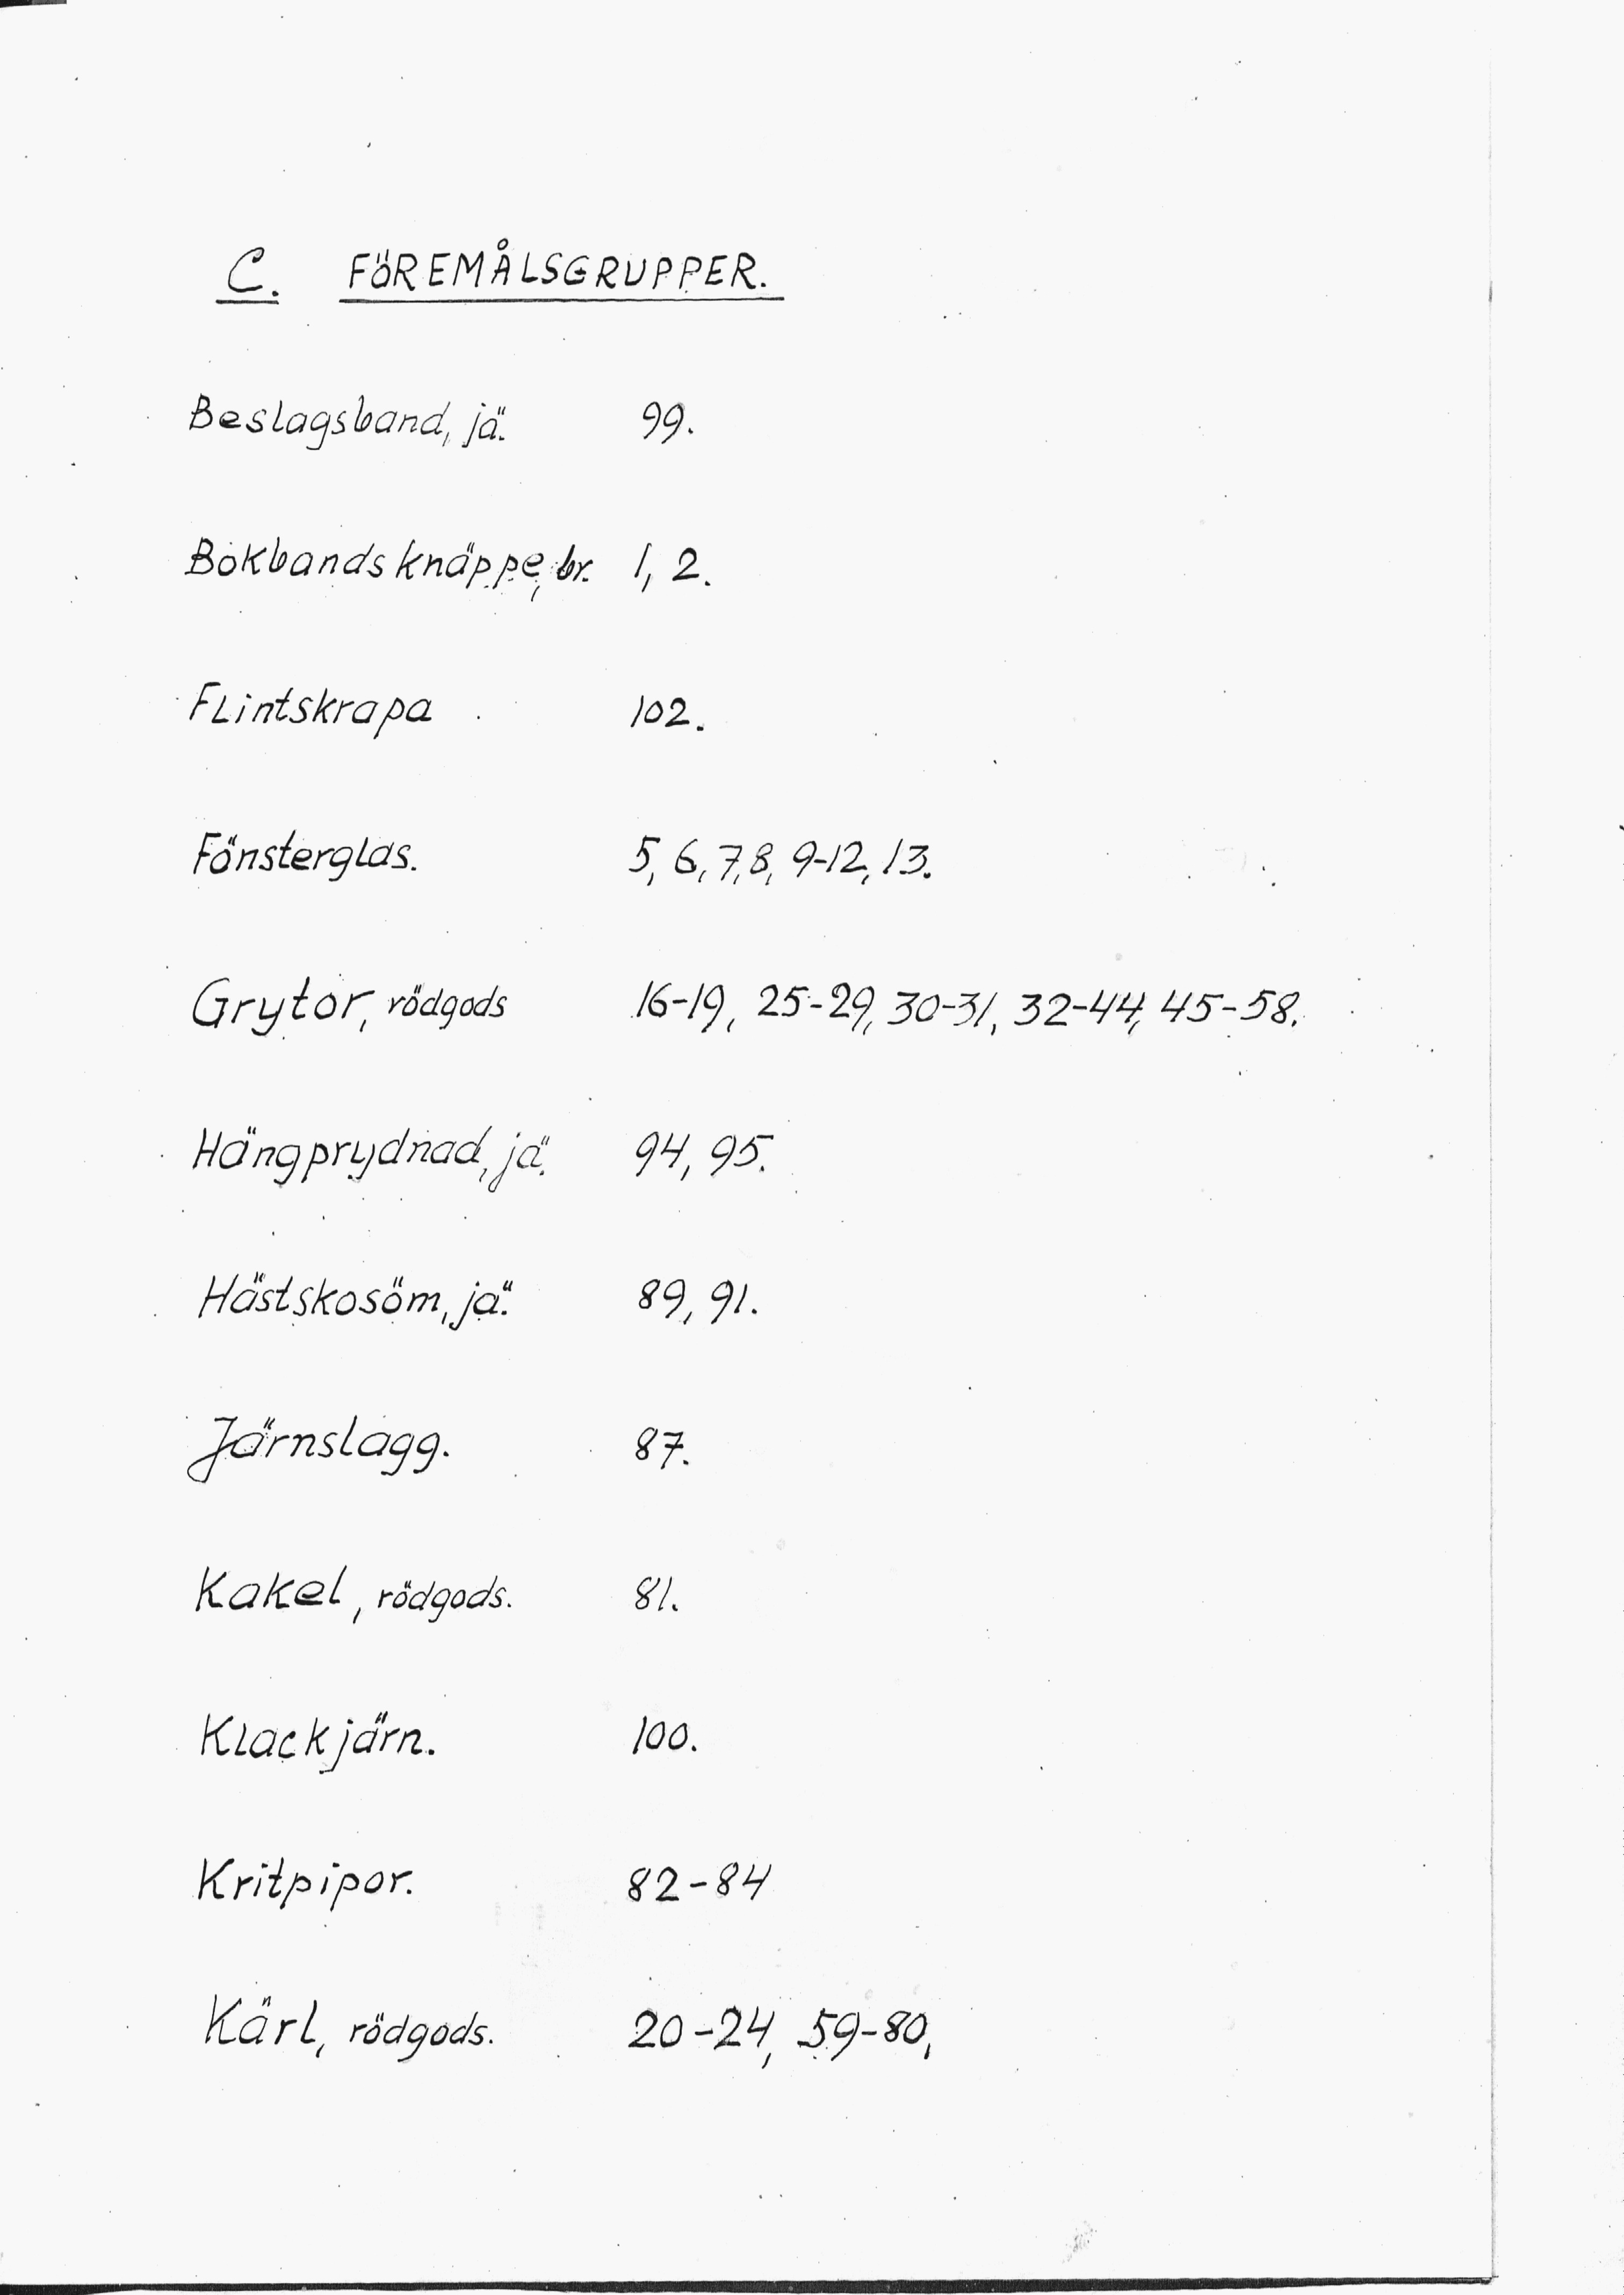 C. FÖREMÅLSGRUPPER.
Beslagsband, jä. 99.
Bokbandsknäppe, br. 1, 2.
Flintskrapa 102.
Fönsterglas. 5, 6, 7, 8, 9-12, 13.
Grytor, rödgods 16-19, 25-29, 30-31, 32-44, 45-58.
Hängprydnad, jä. 94, 95.
Hästskosöm, jä. 89, 91.
Järnslagg. 87.
Kakel, rödgods. 81.
Klackjärn. 100.
Kritpipor. 82-84
Kärl, rödgods. 20-24, 59-80,